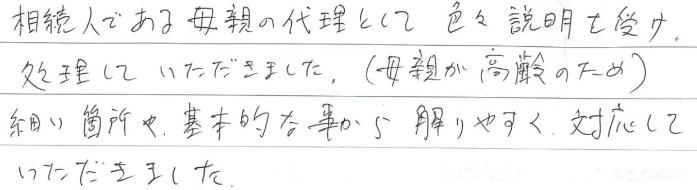 相続人である母親の代理として 色々説明を受け、
処理して いただきました。(母親が高齢のため)
細い箇所や、基本的な事から 解りやすく、対応して
いただきました。